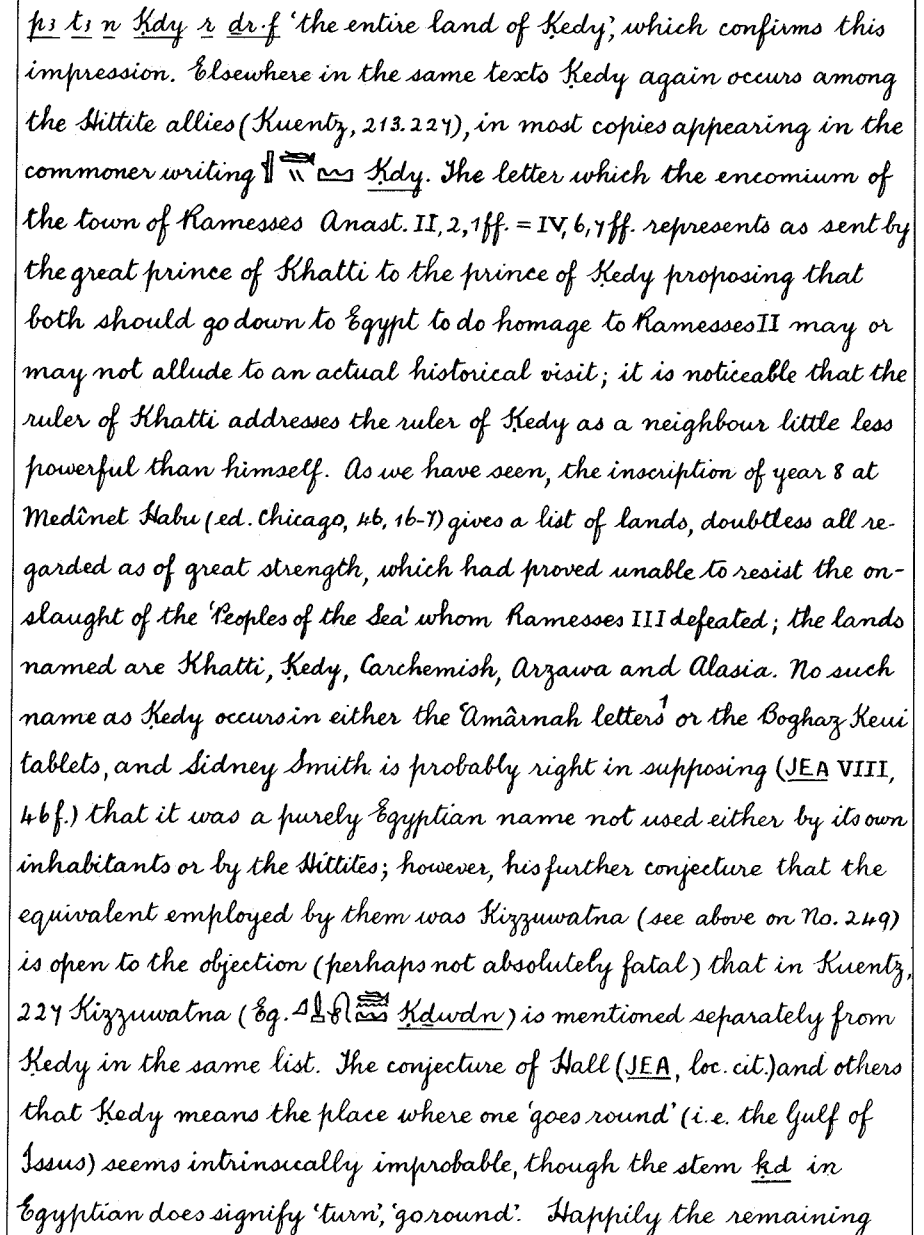 pꜣ tꜣ n Ḳdy r dr·f ‘the entire land of Ḳedy’, which confirms this
impression. Elsewhere in the same texts Ḳedy again occurs among
the Hittite allies (Kuentz, 213.227), in most copies appearing in the
commoner writing Ḳdy. The letter which the encomium of
the town of Ramesses Anast. II, 2, 1ff. = IV, 6, 7ff. represents as sent by
the great prince of Khatti to the prince of Ḳedy proposing that
both should go down to Egypt to do homage to Ramesses II may or
may not allude to an actual historical visit; it is noticeable that the
ruler of Khatti addresses the ruler of Ḳedy as a neighbour little less
powerful than himself. As we have seen, the inscription of year 8 at
Medînet Habu (ed. Chicago, 46, 16-7) gives a list of lands, doubtless all re-
garded as of great strength, which had proved unable to resist the on-
slaught of the ‘Peoples of the Sea’ whom Ramesses III defeated; the lands
named are Khatti, Ḳedy, Carchemish, Arzawa and Alasia. No such
name as Ḳedy occurs in either the ‘Amârnah letters¹ or the Boghaz Keui
tablets, and Sidney Smith is probably right in supposing (JEA VIII,
46f.) that it was a purely Egyptian name not used either by its own
inhabitants or by the Hittites; however, his further conjecture that the
equivalent employed by them was Kizzuwatna (see above on No. 249)
is open to the objection (perhaps not absolutely fatal) that in Kuentz,
227 Kizzuwatna (Eg. Ḳḏwdn) is mentioned separately from
Ḳedy in the same list. The conjecture of Hall (JEA, loc. cit.) and others
that Ḳedy means the place where one ‘goes round’ (i.e. the Gulf of
Issus) seems intrinsically improbable, though the stem ḳd in
Egyptian does signify ‘turn’, ‘go round’. Happily the remaining